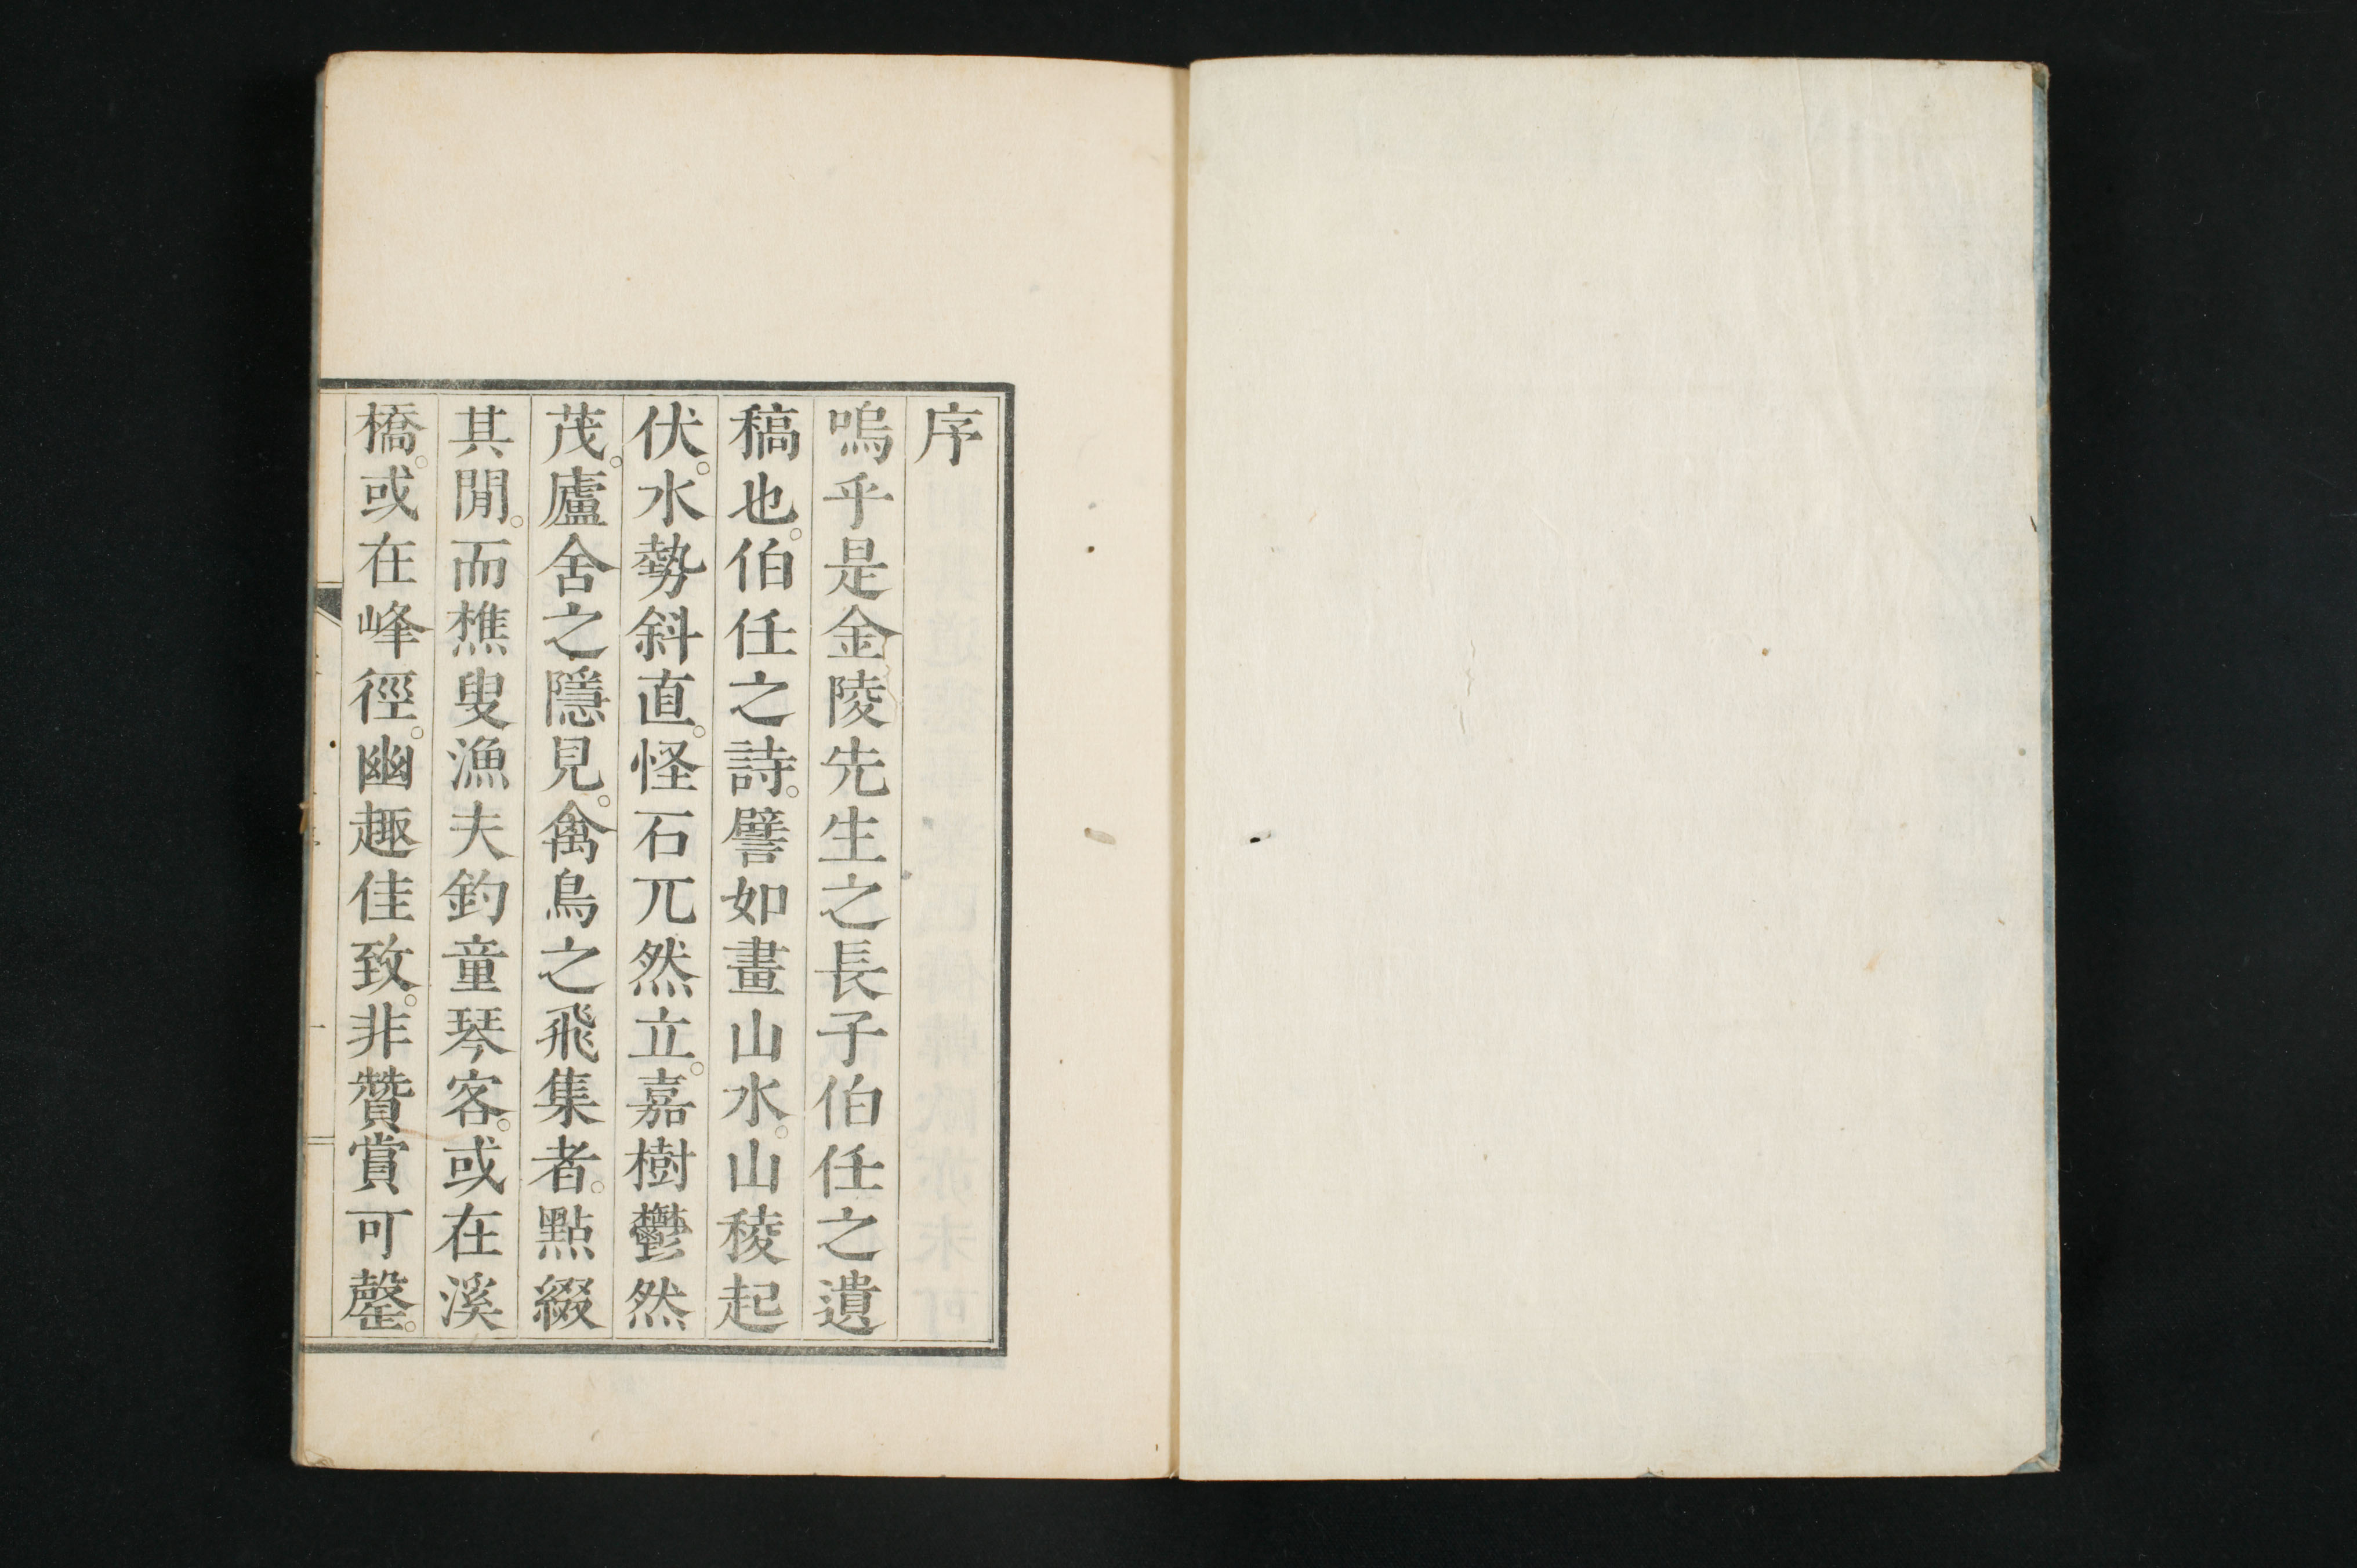 序
嗚乎是金陵先生之長子伯任之遺
稿也。伯任之詩。譬如畫山水。山稜起
伏。水勢斜直。怪石兀然立。嘉樹鬱然
茂。廬舍之隱見。禽鳥之飛集者。點綴
其閒。而樵叟漁夫釣童琴客。或在溪
橋。或在峰徑。幽趣佳致。非贊賞可罄。